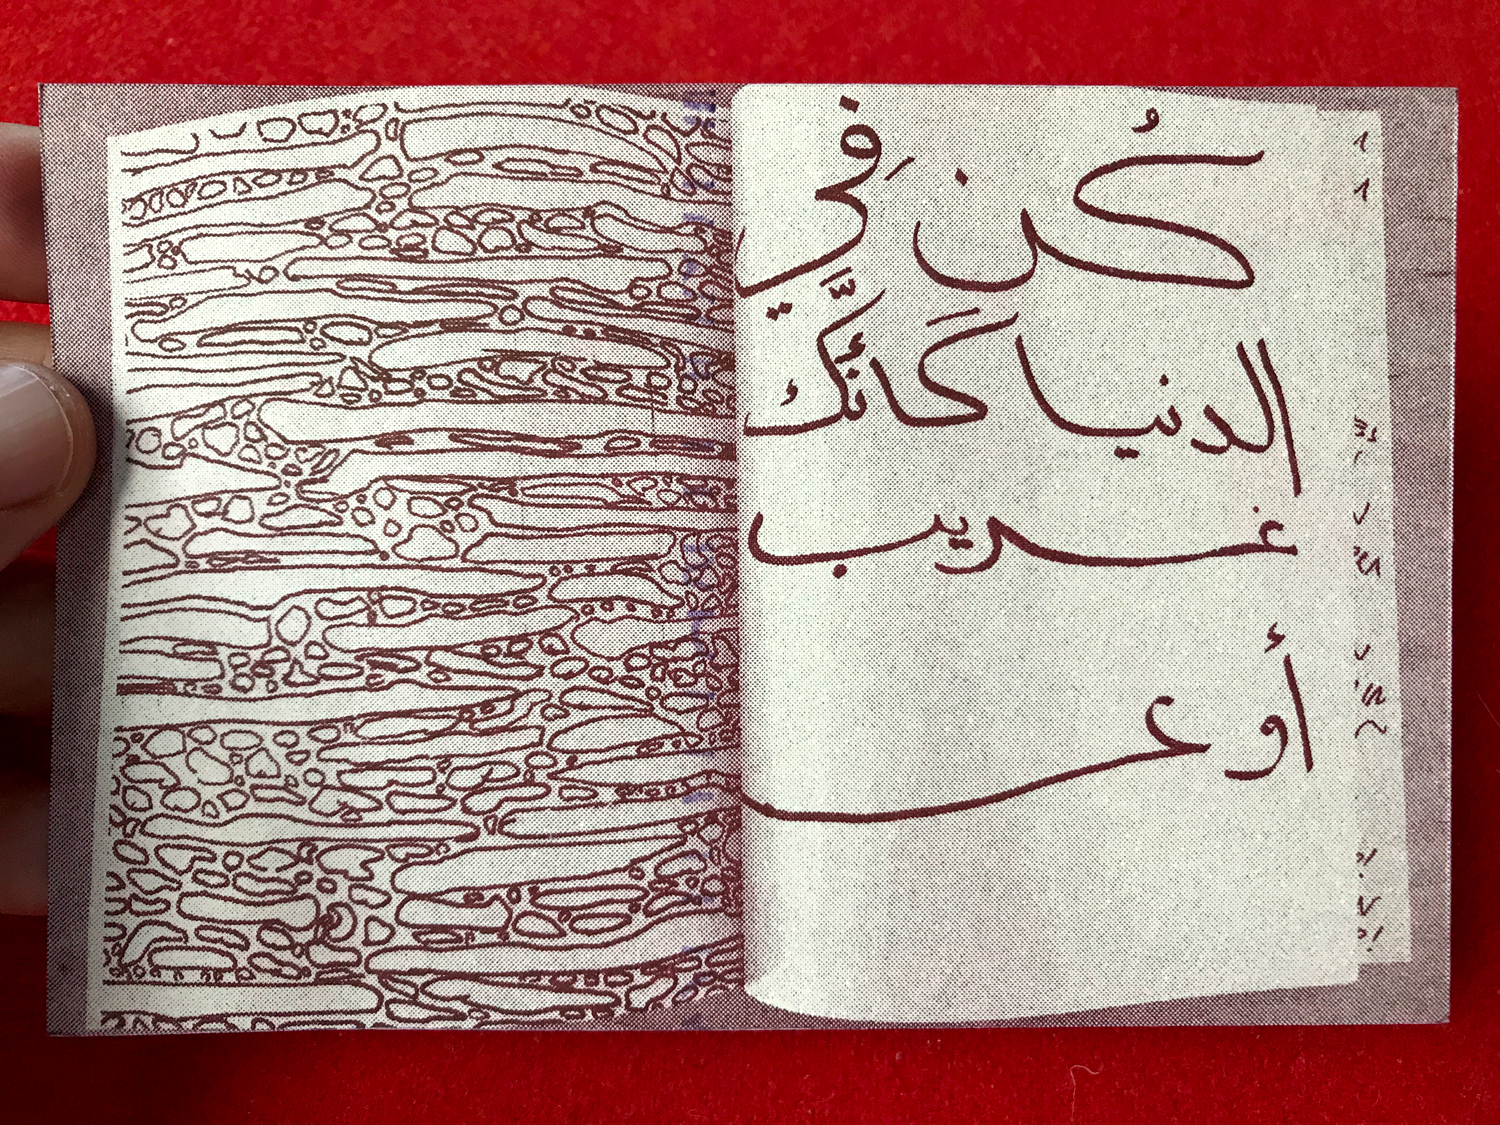 كُن فِي
الدنيا كَأنَّك
غريب
أو